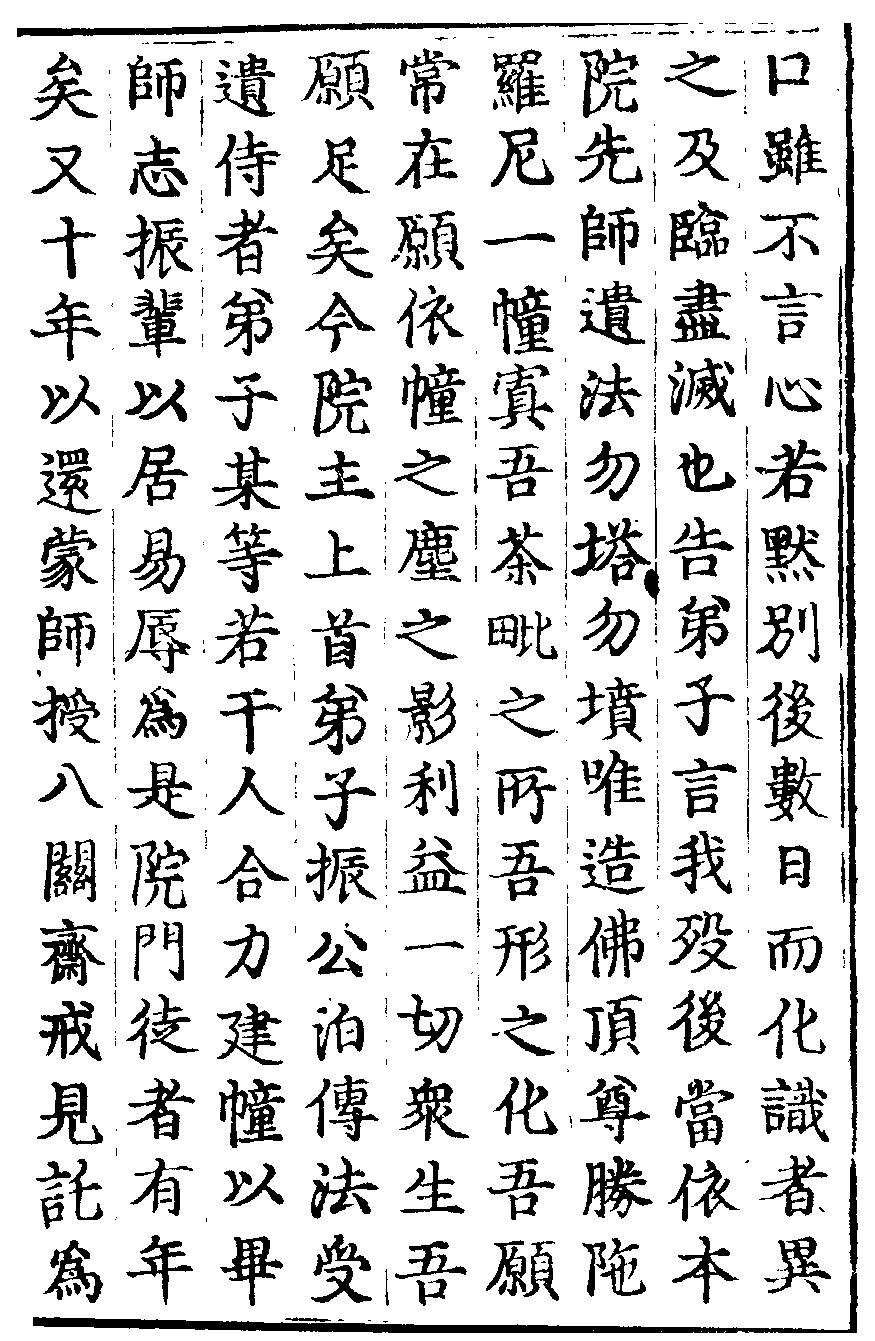 口雖不言心若默別後數日而化識者異
之及臨盡滅也告弟子言我歿後當依本
院先師遺法勿塔勿墳唯造佛頂尊勝陁
羅尼一幢寘吾茶毗之所吾形之化吾願
常在願依幢之塵之影利益一切衆生吾
願足矣今院主上首弟子振公洎傳法受
遺侍者弟子某等若干人合力建幢以畢
師志振輩以居易辱爲是院門徒者有年
矣又十年以還蒙師授八關齋戒見託爲